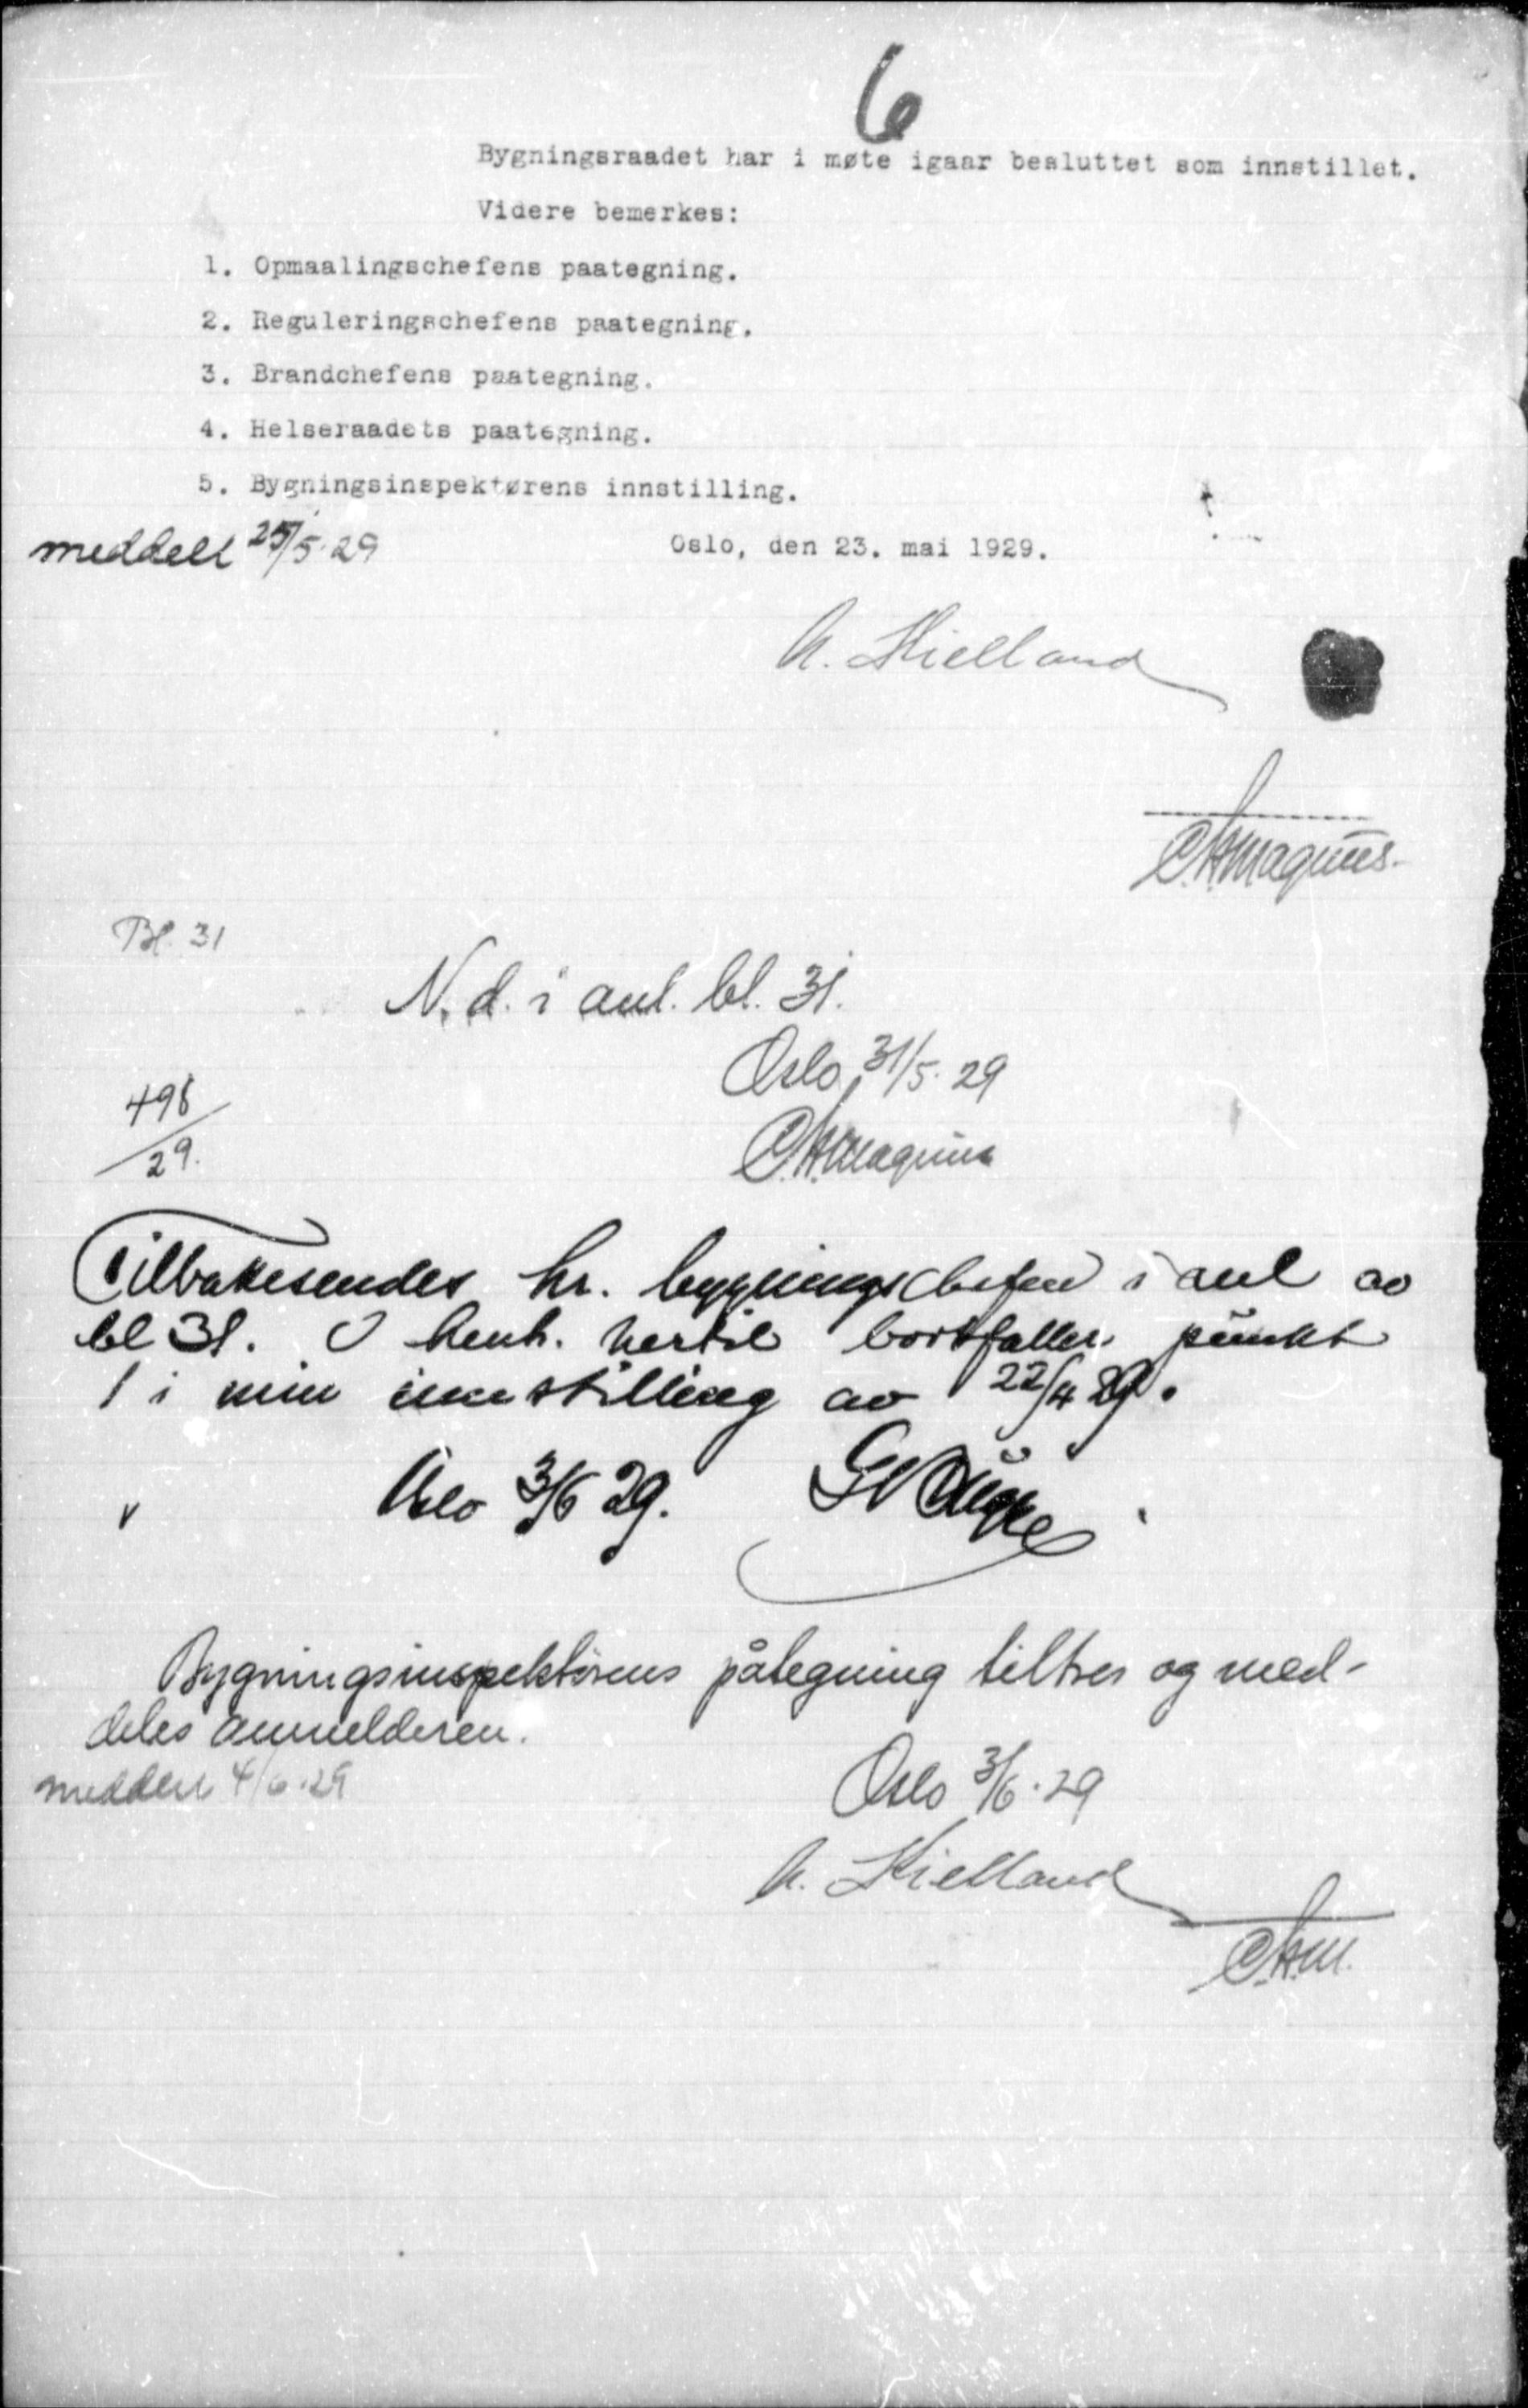 6
Bygningsraadet har i møte igaar besluttet som innstillet.
Videre bemerkes:
1. Opmaalingschefens paategning.
2. Reguleringschefens paategning.
3. Brandchefens paategning.
4. Helseraadets paategning.
5. Bygningsinspektørens innstilling.
meddelt 25/5-29
Oslo, den 23. mai 1929.
Kielland
C.H.Magnus.
Bl. 31
N.d. i anl. bl. 31.
Oslo, 31/5-29
C.H.Magnus
498/29.
Tilbakesendes hr. bygningschefen i anl av
bl 31. I henh. hertil bortfaller punkt
1 i min innstilling av 22/4 29.
Oslo 3/6 29.
Bygningsinspektørens påtegning tiltres og med-
deles anmelderen.
meddelt 4/6-29
Oslo 3/6-29
Kielland
C.H.M.